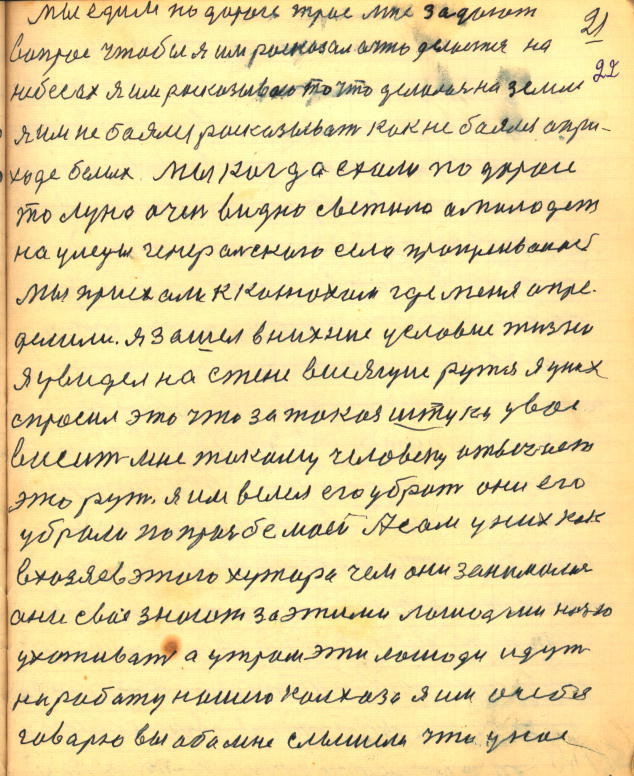 мы едим по дороге трое мне задают 21
вопрос чтобы я им росказал очто делается на
небесах я им росказываю то что делолая на земли 22
я им не баялся росказыват как не баялся опри-
ходе белых. Мы когда ехали по дороге
то луно очен видно светило а молодеж
на улецы генеральского село
мы приехали к конюхом где меня опре-
делили. я зашел в них ние условие жизно
я увидел на стене висящие ружя я у них
спросил это что за такая штука у вас
висит. мне такому человеку отвечают
это руж. я им велел его убрат они его
убрали по прозбе моей А сам у них как
в хозяев этого хутара чем они занимался
они свое знают за этими лошодями нодо
ухаживат а утром эти лошоди идут
на работу нашего колхоза я им о себя
говарю вы оба мне слышели что у нас